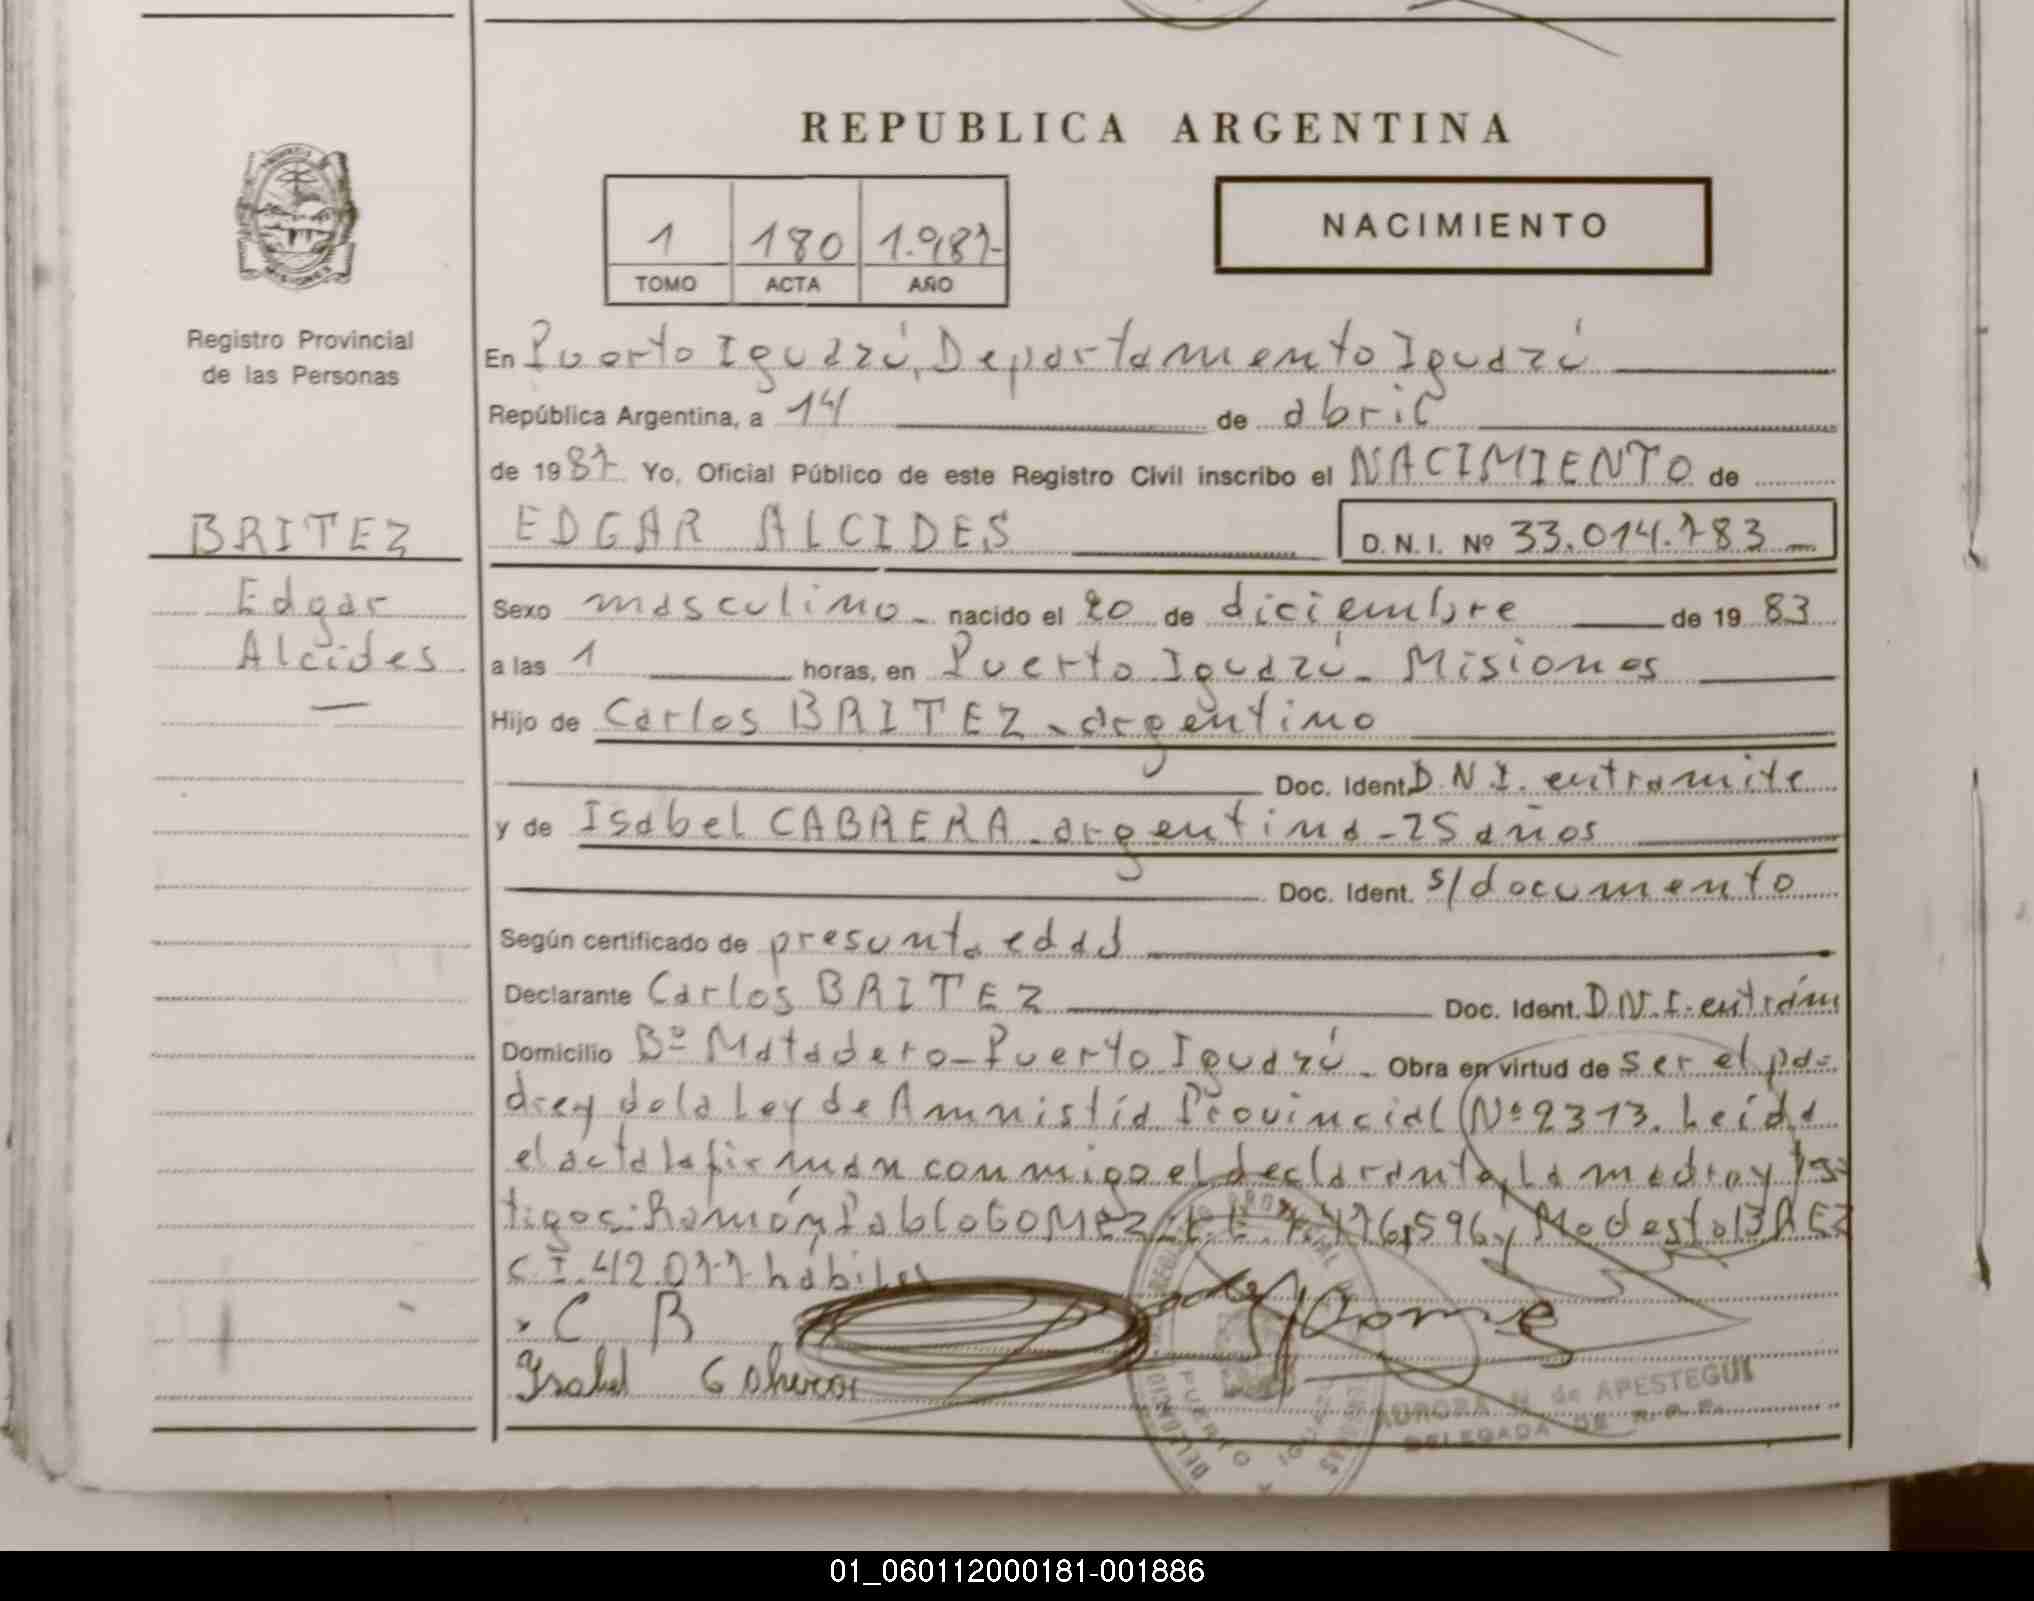 REPUBLICA ARGENTINA
1 180 1.987-
TOMO ACTA AÑO
NACIMIENTO
Registro Provincial
de las Personas
En Puerto Iguazú, Departamento Iguazú
República Argentina, a 14 de abril
de 1987 Yo, Oficial Público de este Registro Civil inscribo el NACIMIENTO de
BRITEZ
Edgar
Alcides
EDGAR ALCIDES D. N. I. Nº 33.014.783
Sexo masculino - nacido el 20 de diciembre de 1983
a las 1 horas, en Puerto Iguazú - Misiones
Hijo de Carlos BRITEZ - argentino
Doc. Ident. D.N.I. entramite
y de Isabel CABRERA - argentina - 25 años
Doc. Ident. s/documento
Según certificado de presunta edad
Declarante Carlos BRITEZ Doc. Ident. D.N.I. entrám
Domicilio Bº Matadero - Puerto Iguazú - Obra en virtud de ser el pa=
dre y de la Ley de Amnistía Provincial Nº 2313. Leída
el acta la firman conmigo el declarante, la madre y tes=
tigos: Ramón Pablo GOMEZ 7.476.596 y Modesto BAEZ
C.I. 42.077 hábiles
x C B
Isabel Cabrera
AURORA de APESTEGUI
DELEGADA DE R.P.P.
01_060112000181-001886